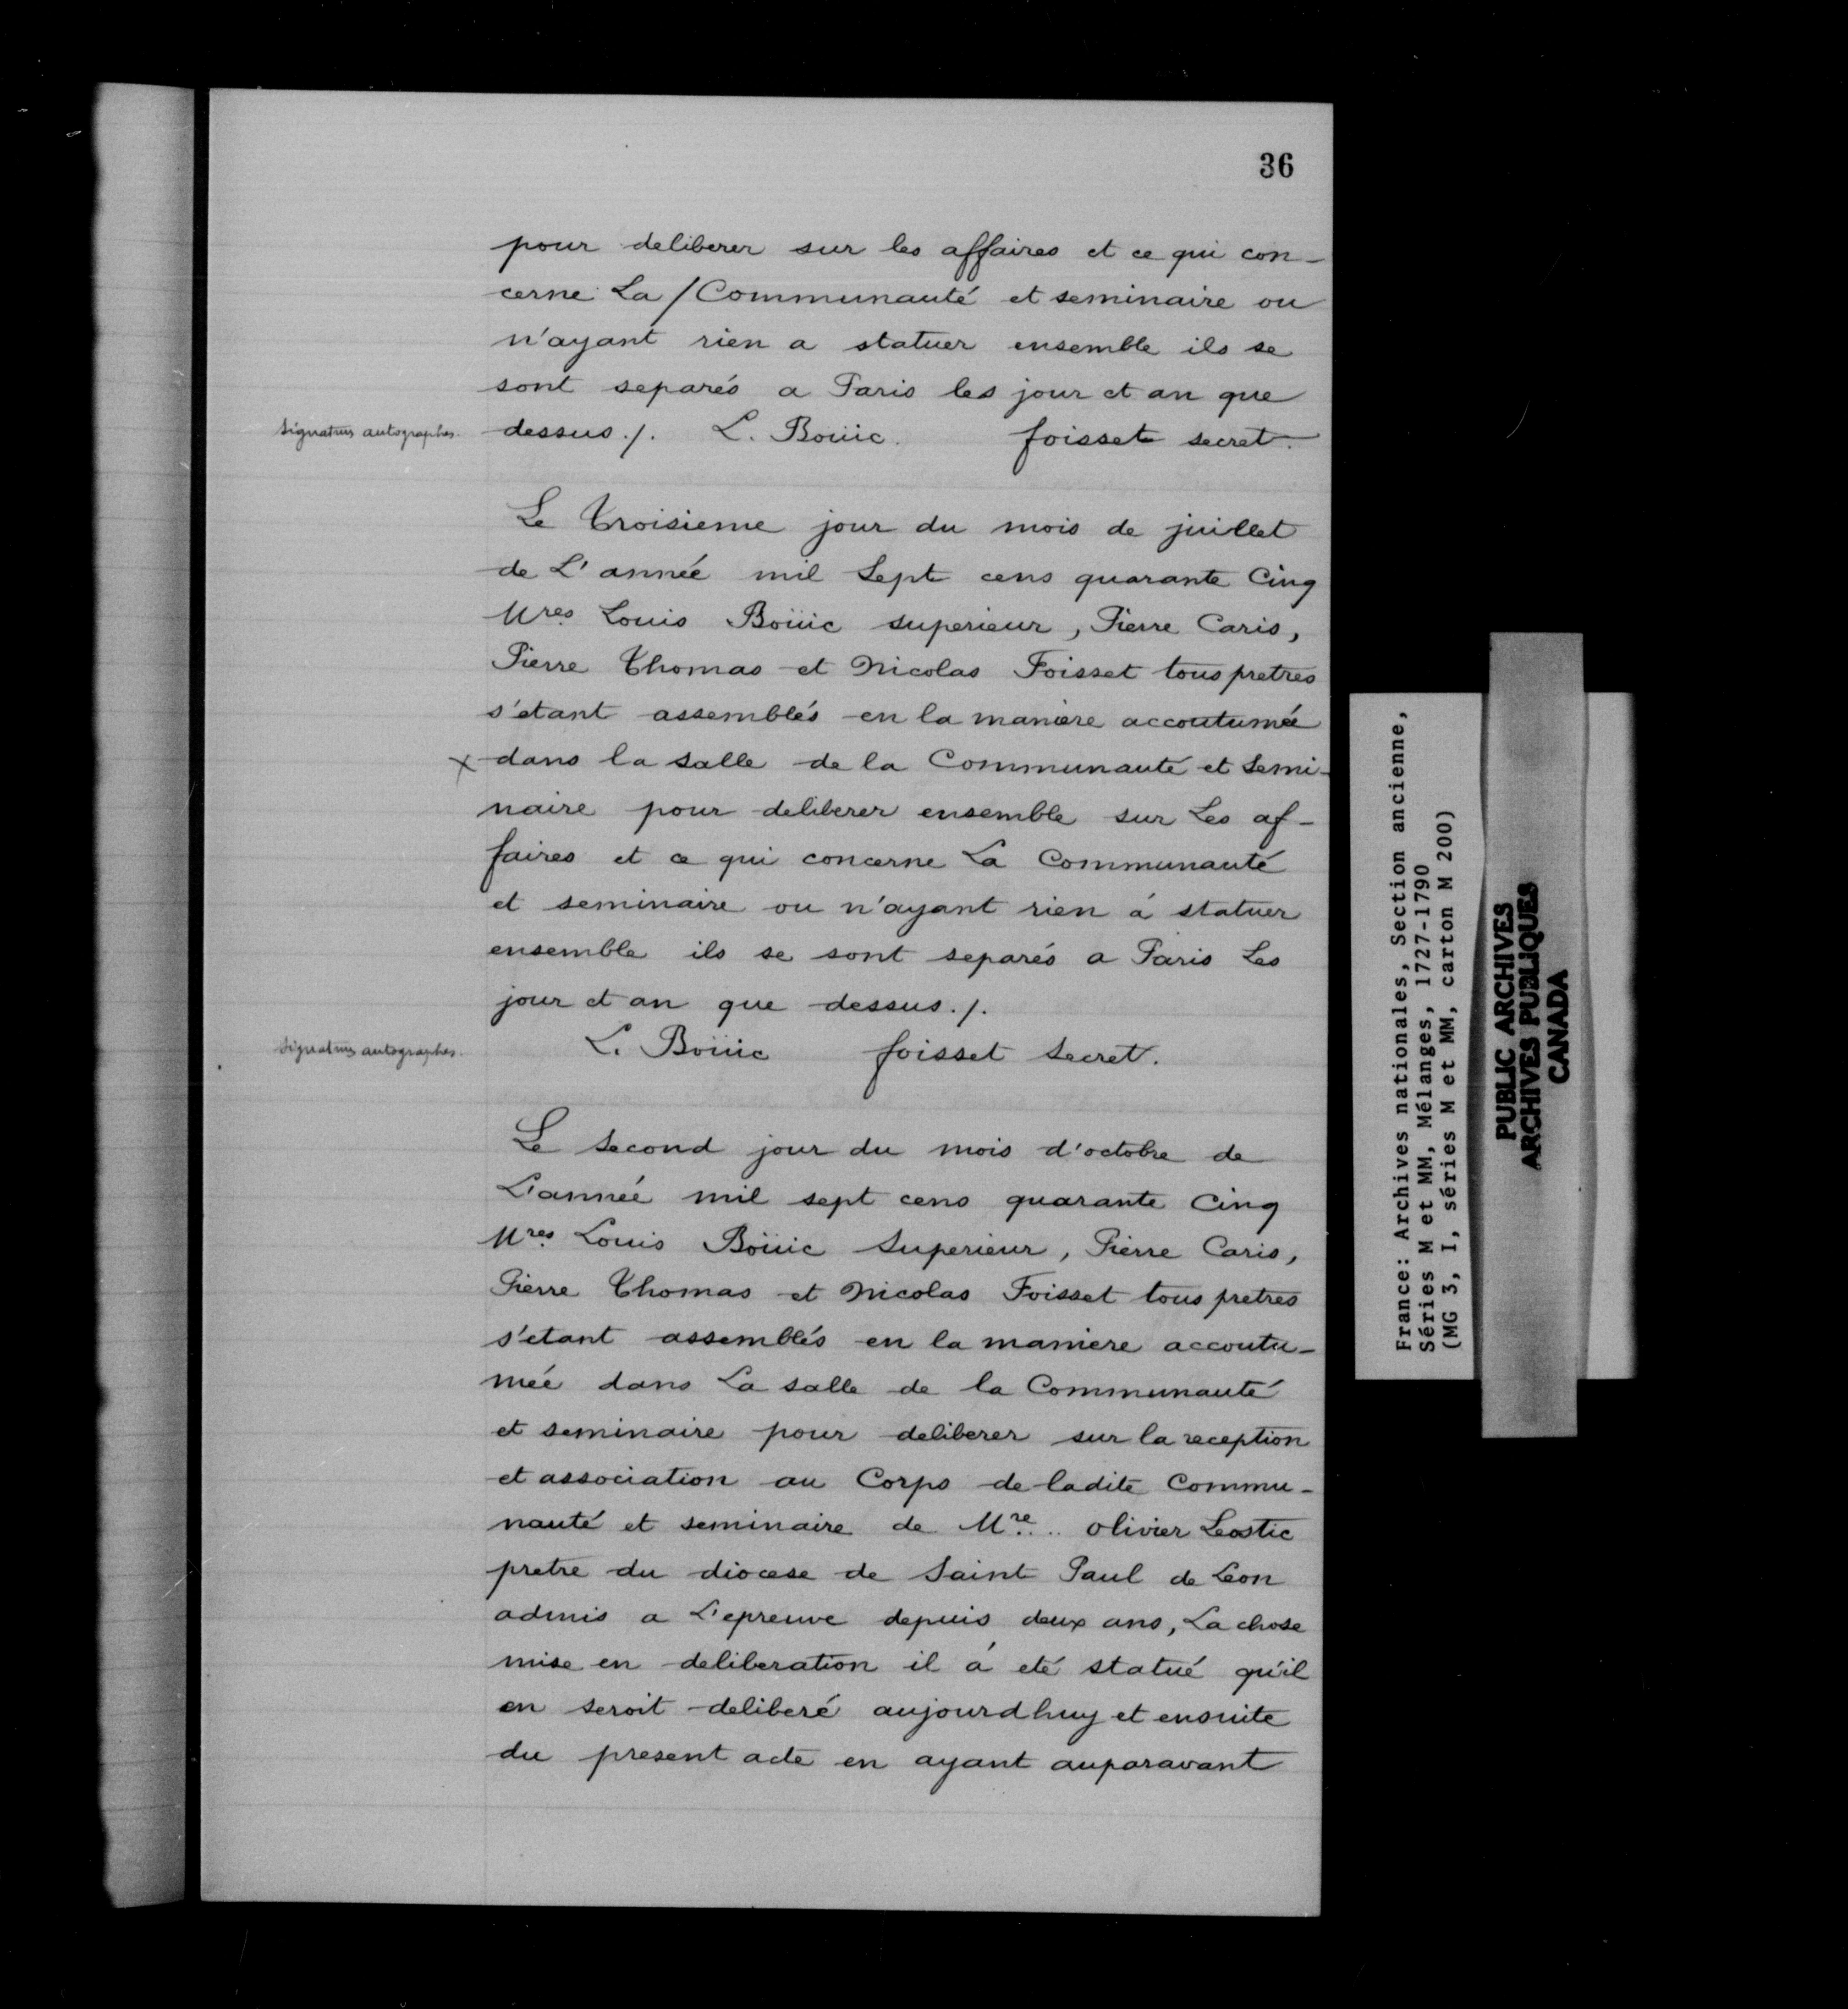 36
pour deliberer sur les affaires et ce qui con-
cerne La / Communauté et seminaire ou
n'ayant rien a statuer ensemble ils se
sont separés a Paris les jour et an que
signatures autographes. dessus ./. L. Boüic. foisset secret.
Le Troisieme jour du mois de juillet
de L'année mil Sept cens quarante Cinq
Mres Louis Boüic superieur, Pierre Caris,
Pierre Thomas et Nicolas Foisset tous pretres
s'etant assemblés en la maniere accoutumée
x dans la salle de la Communauté et Semi-
naire pour deliberer ensemble sur Les af-
faires et ce qui concerne La Communauté
et seminaire ou n'ayant rien á statuer
ensemble ils se sont separés a Paris Les
jour et an que dessus ./.
signatures autographes. L. Boüic foisset Secret.
Le Second jour du mois d'octobre de
L'année mil sept cens quarante Cinq
Mres Louis Boüic Superieur, Pierre Caris,
Pierre Thomas et Nicolas Foisset tous pretres
s'etant assemblés en la maniere accoutu-
mée dans La salle de la Communauté
et seminaire pour deliberer sur la reception
et association au Corps de ladite Commu-
nauté et seminaire de Mre.. olivier Leostic
pretre du diocese de Saint Paul de Leon
admis a L'epreuve depuis deux ans, La chose
mise en deliberation il á eté statué qu'il
en seroit deliberé aujourdhuy et ensuite
du present acte en ayant auparavant
France: Archives nationales, Section ancienne,
Séries M et MM, Mélanges, 1727-1790
(MG 3, I, séries M et MM, carton M 200)
PUBLIC ARCHIVES
ARCHIVES PUBLIQUES
CANADA